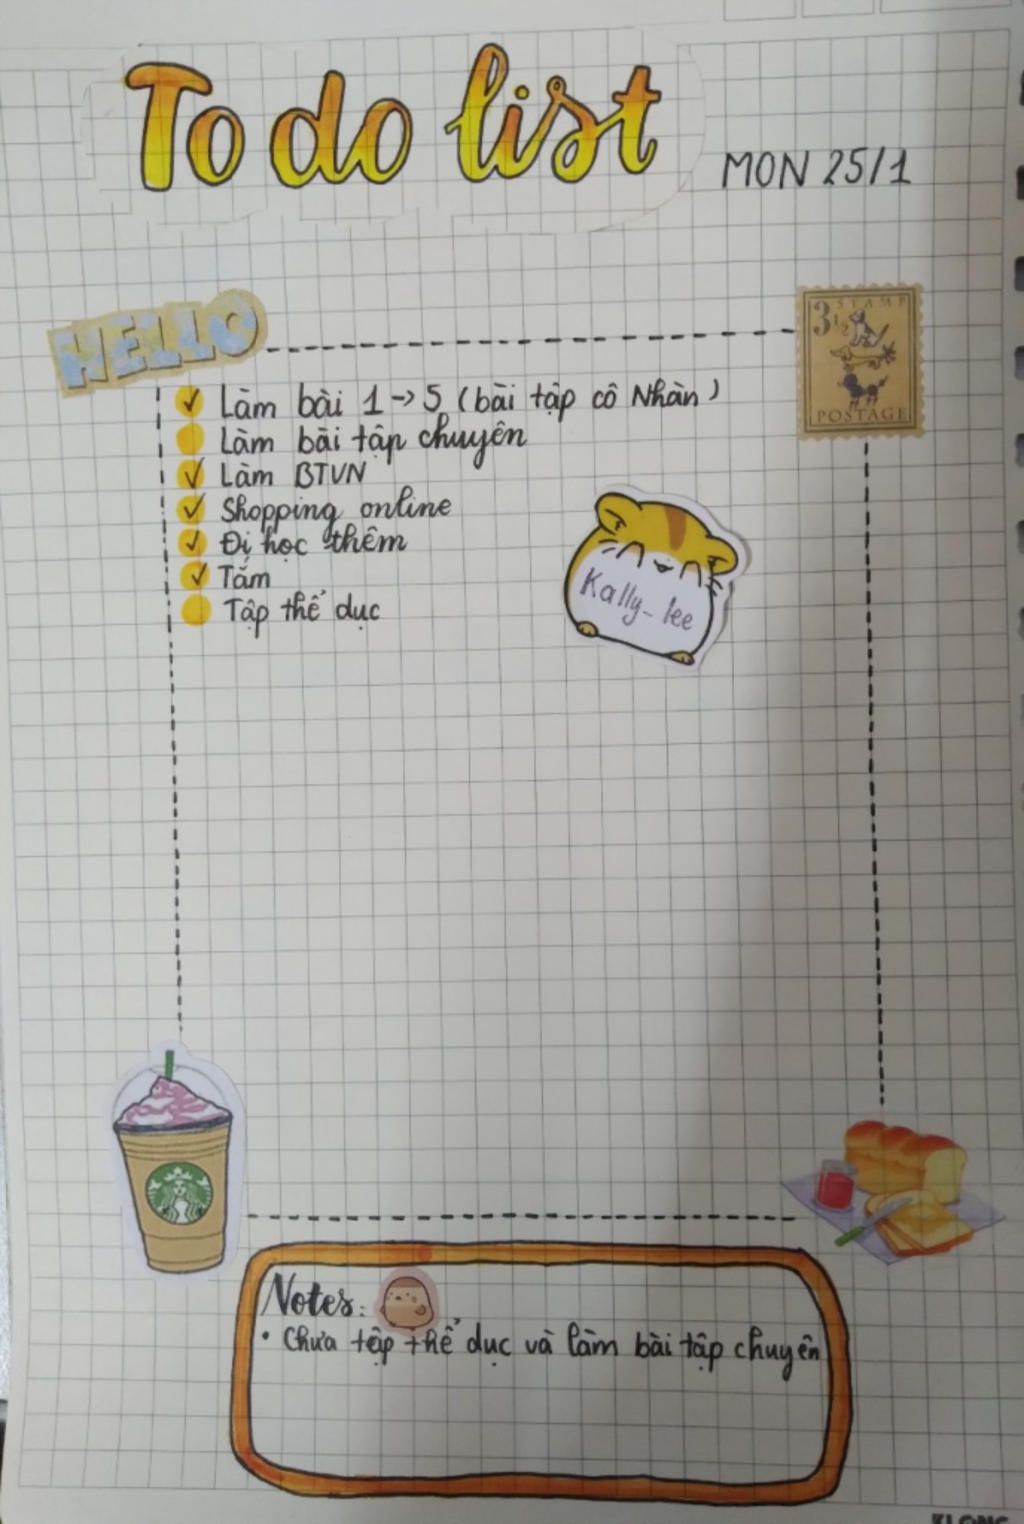 To do list
MON 25/1
HELLO
3 1/2 STAMP
POSTAGE
Làm bài 1 → 5 (bài tập cô Nhàn)
Làm bài tập chuyên
Làm BTVN
Shopping online
Đi học thêm
Tắm
Tập thể dục
Kally_lee
Notes:
• Chưa tập thể dục và làm bài tập chuyên
KLONG